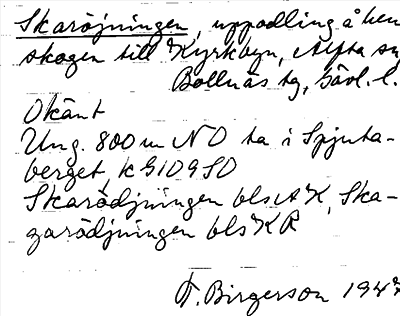 Skaröjningen, uppodling å hem
skogen till Kyrkbyn, Alfta sn
Bollnäs tg, Gävl. l.
Okänt
Ung. 800 m NO ta i Spjuta-
berget, k G109 SO
Skarödjningen bls AK, Ska-
garödjningen bls KR
F. Birgerson 194